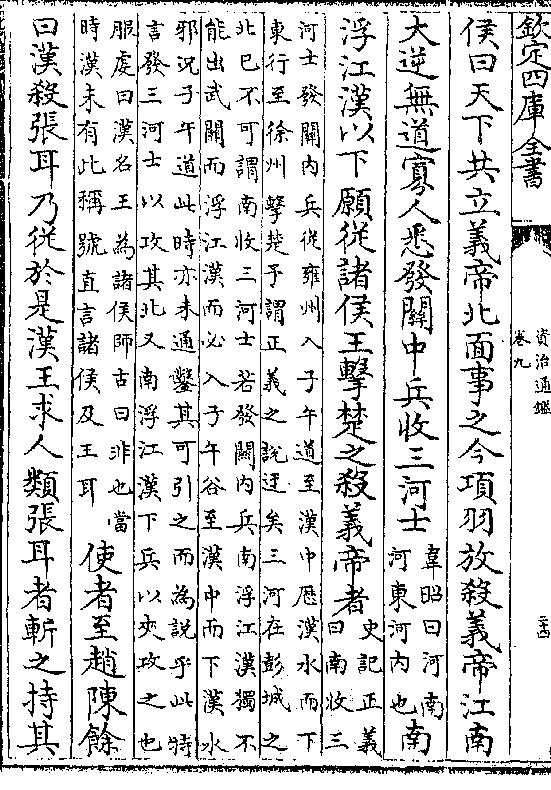 欽定四庫全書
資治通鑑
卷九
二十四
侯曰天下共立義帝北面事之今項羽放殺義帝江南
大逆無道寡人悉發關中兵收三河士
韋昭曰河南
河東河內也
南
浮江漢以下願從諸侯王擊楚之殺義帝者
史記正義
曰南收三
河士發關內兵從雍州入子午道至漢中歷漢水而下
東行至徐州擊楚予謂正義之說迂矣三河在彭城之
北已不可謂南收三河士若發關內兵南浮江漢獨不
能出武關而浮江漢而必入子午谷至漢中而下漢水
邪況子午道此時亦未通鑿其可引之而為說乎此特
言發三河士以攻其北又南浮江漢下兵以夾攻之也
服虔曰漢名王為諸侯師古曰非也當
時漢未有此稱號直言諸侯及王耳
使者至趙陳餘
曰漢殺張耳乃從於是漢王求人類張耳者斬之持其